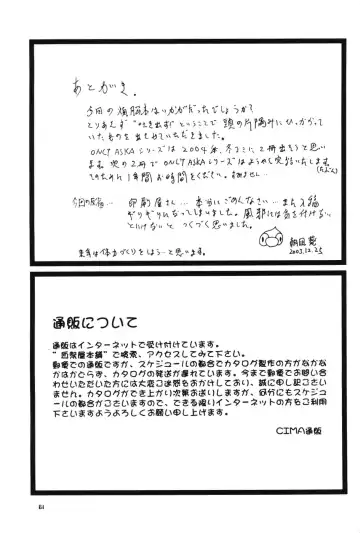 あとがき。
今回の復讐者はいかがだったでしょうか?
とりあえず"吐き出す"ということで頭の片隅にひっかかって
いたものを出させていただきました。
ONLY ASKAシリーズは2004年、冬コミに2冊出そうと思い
ます。次の2冊でONLY ASKAシリーズはようやく完結いたします
そのために1年間お時間をください。
今回の反省… 印刷屋さん…本当にごめんなさい…またえ稿
ギリギリになってしまいました。風邪には気を付けない
といけないと つくづく思いました。
来年は体力づくりをしよう…と思います。
2003.12.25
通販について
通販はインターネットで受け付けています。
"缶柴屋本舗"で検索、アクセスしてみて下さい。
郵便での通販ですが、スケジュールの都合でカタログ製作の方がなかな
かはかどらず、カタログの発送が遅れています。今まで郵便でお問い合
わせいただいた方には大変ご迷惑をおかけしており、誠に申し訳ございま
せん。カタログができ上がり次第お送りしますが、何分にもスケジュ
ールの都合がございますので、できる限りインターネットの方をご利用
下さいますようよろしくお願い申し上げます。
CIMA通販